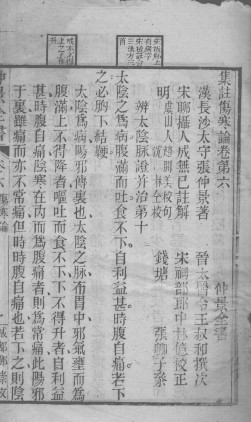 集註傷寒論卷第六
仲景全書
漢長沙太守張仲景著
晉太醫令王叔和撰次
宋聊攝人成無已註解
宋祠部郎中林億校正
明
虞山人趙開美校句
沈琳仝校
錢塘
張卿子參
辨太陰脉證并治第十
太陰之爲病腹滿而吐食不下自利益甚時腹自痛若下
之必胷下結鞕
太陰爲病陽邪傳裏也太陰之脉布胃中邪氣壅而爲
腹滿上不得降者嘔吐而食不下下不得升者自利益
甚時腹自痛陰寒在内而爲腹痛者則爲常痛此陽邪
干裏雖痛而亦不常痛但時時腹自痛也若下之則陰